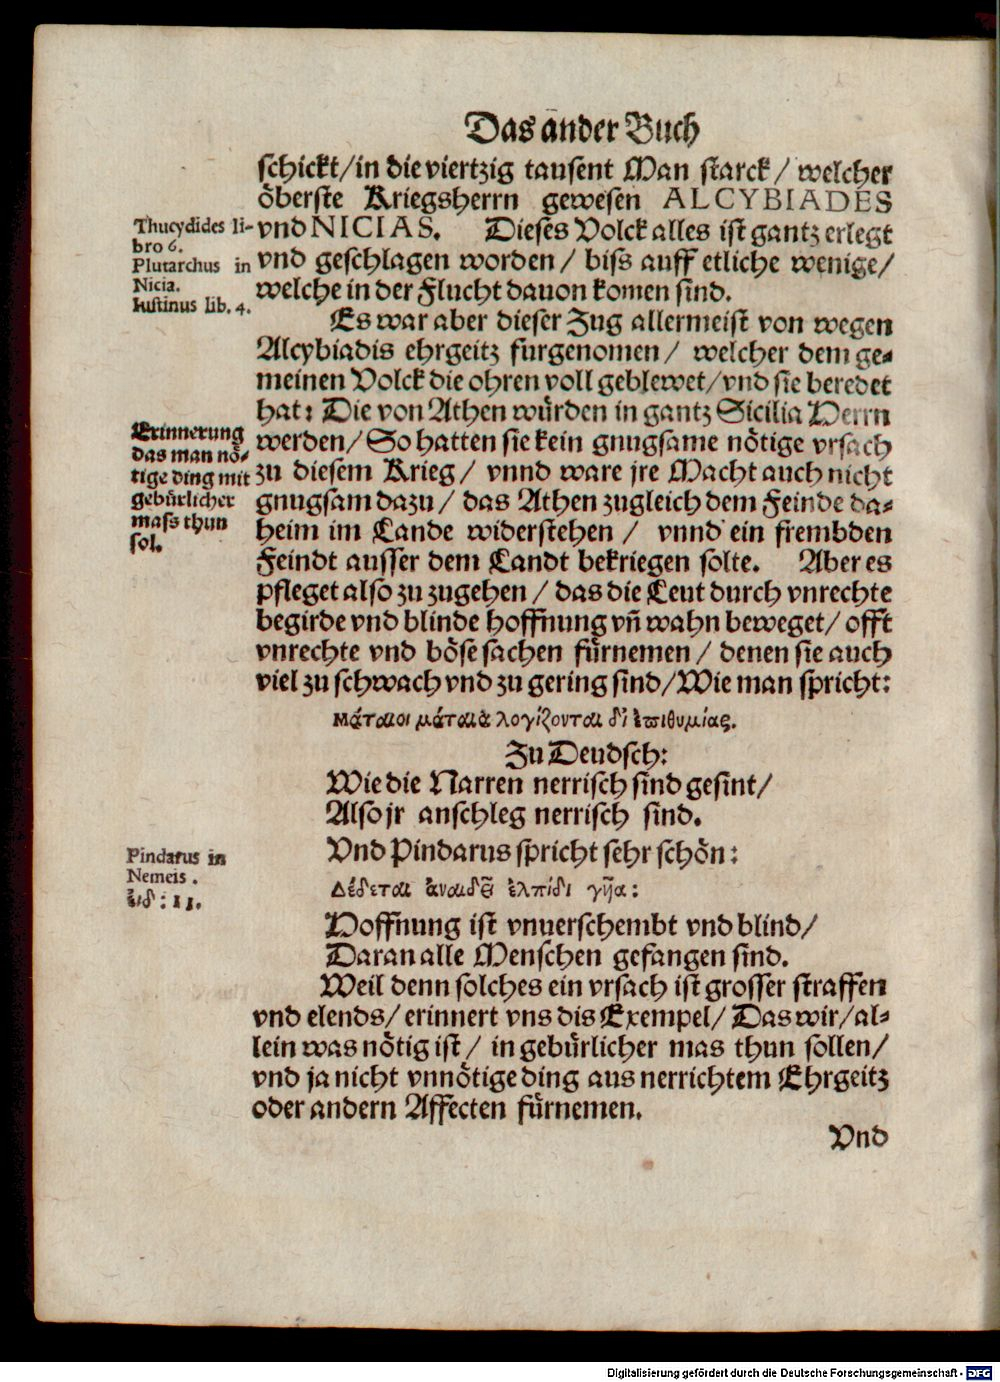 Das ander Buch
schickt/in die viertzig tausent Man starck/ welcher
öberste Kriegsherrn gewesen ALCYBIADES
vnd NICIAS. Dieses Volck alles ist gantz erlegt
vnd geschlagen worden/ biss auff etliche wenige/
welche in der Flucht dauon komen sind.
Thucydides li-
bro 6.
Plutarchus in
Nicia.
Iustinus lib. 4.
Es war aber dieser Zug allermeist von wegen
Alcybiadis ehrgeitz furgenomen/ welcher dem ge-
meinen Volck die ohren voll geblewet/vnd sie beredet
hat: Die von Athen würden in gantz Sicilia Herrn
werden/ So hatten sie kein gnugsame nötige vrsach
zu diesem Krieg/ vnnd ware jre Macht auch nicht
gnugsam dazu/ das Athen zugleich dem Feinde da-
heim im Lande widerstehen/ vnnd ein frembden
Feindt ausser dem Landt bekriegen solte. Aber es
pfleget also zu zugehen/ das die Leut durch vnrechte
begirde vnd blinde hoffnung vñ wahn beweget/ offt
vnrechte vnd böse sachen fürnemen/ denen sie auch
viel zu schwach vnd zu gering sind/Wie man spricht:
Erinnerung
das man nö-
tige ding mit
gebürlicher
mass thun
sol.
μάταιοι μάταια λογίζονται δι' ἐπιθυμίας.
Zu Deudsch:
Wie die Narren nerrisch sind gesint/
Also jr anschleg nerrisch sind.
Vnd Pindarus spricht sehr schön:
Pindarus in
Nemeis.
ἐιδ: 11.
Δέδεται ἀναιδεῖ ἐλπίδι γῆα:
Hoffnung ist vnuerschembt vnd blind/
Daran alle Menschen gefangen sind.
Weil denn solches ein vrsach ist grosser straffen
vnd elends/ erinnert vns dis Exempel/ Das wir/al-
lein was nötig ist/ in gebürlicher mas thun sollen/
vnd ja nicht vnnötige ding aus nerrichtem Ehrgeitz
oder andern Affecten fürnemen.
Vnd
Digitalisierung gefördert durch die Deutsche Forschungsgemeinschaft - DFG